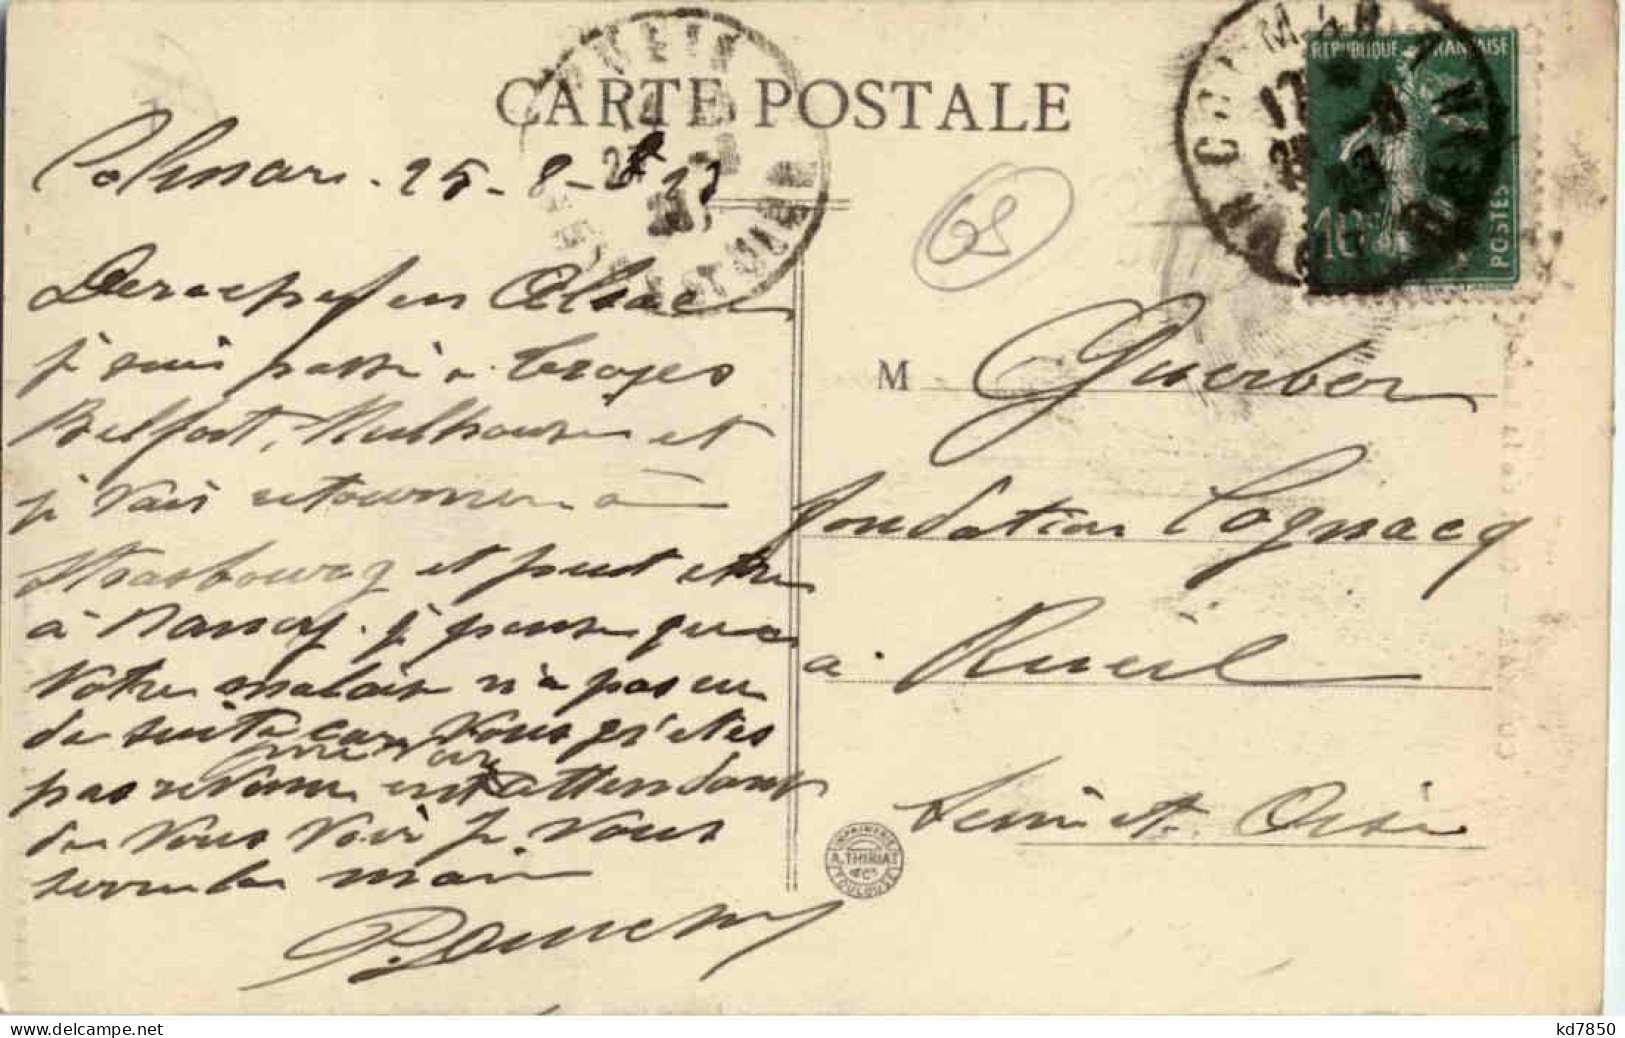 CARTE POSTALE
Colmar. 25-8-
REPUBLIQUE FRANÇAISE
10c
POSTES
COLMAR
68
en Alsace
je suis passé à Troyes
Belfort, Mulhouse et
je vais retourner à
Strasbourg et peut etre
à Nancy. je pense que
votre malair n'a pas eu
de suite car vous n'etes
pas revenu en attendant
de vous voir je vous
serre la main
M Guerber
fondation Cognacq
a. Rueil
Seine et. Oise
IMPRIMERIE
A. THIRIAT
& Cie
TOULOUSE
kd7850